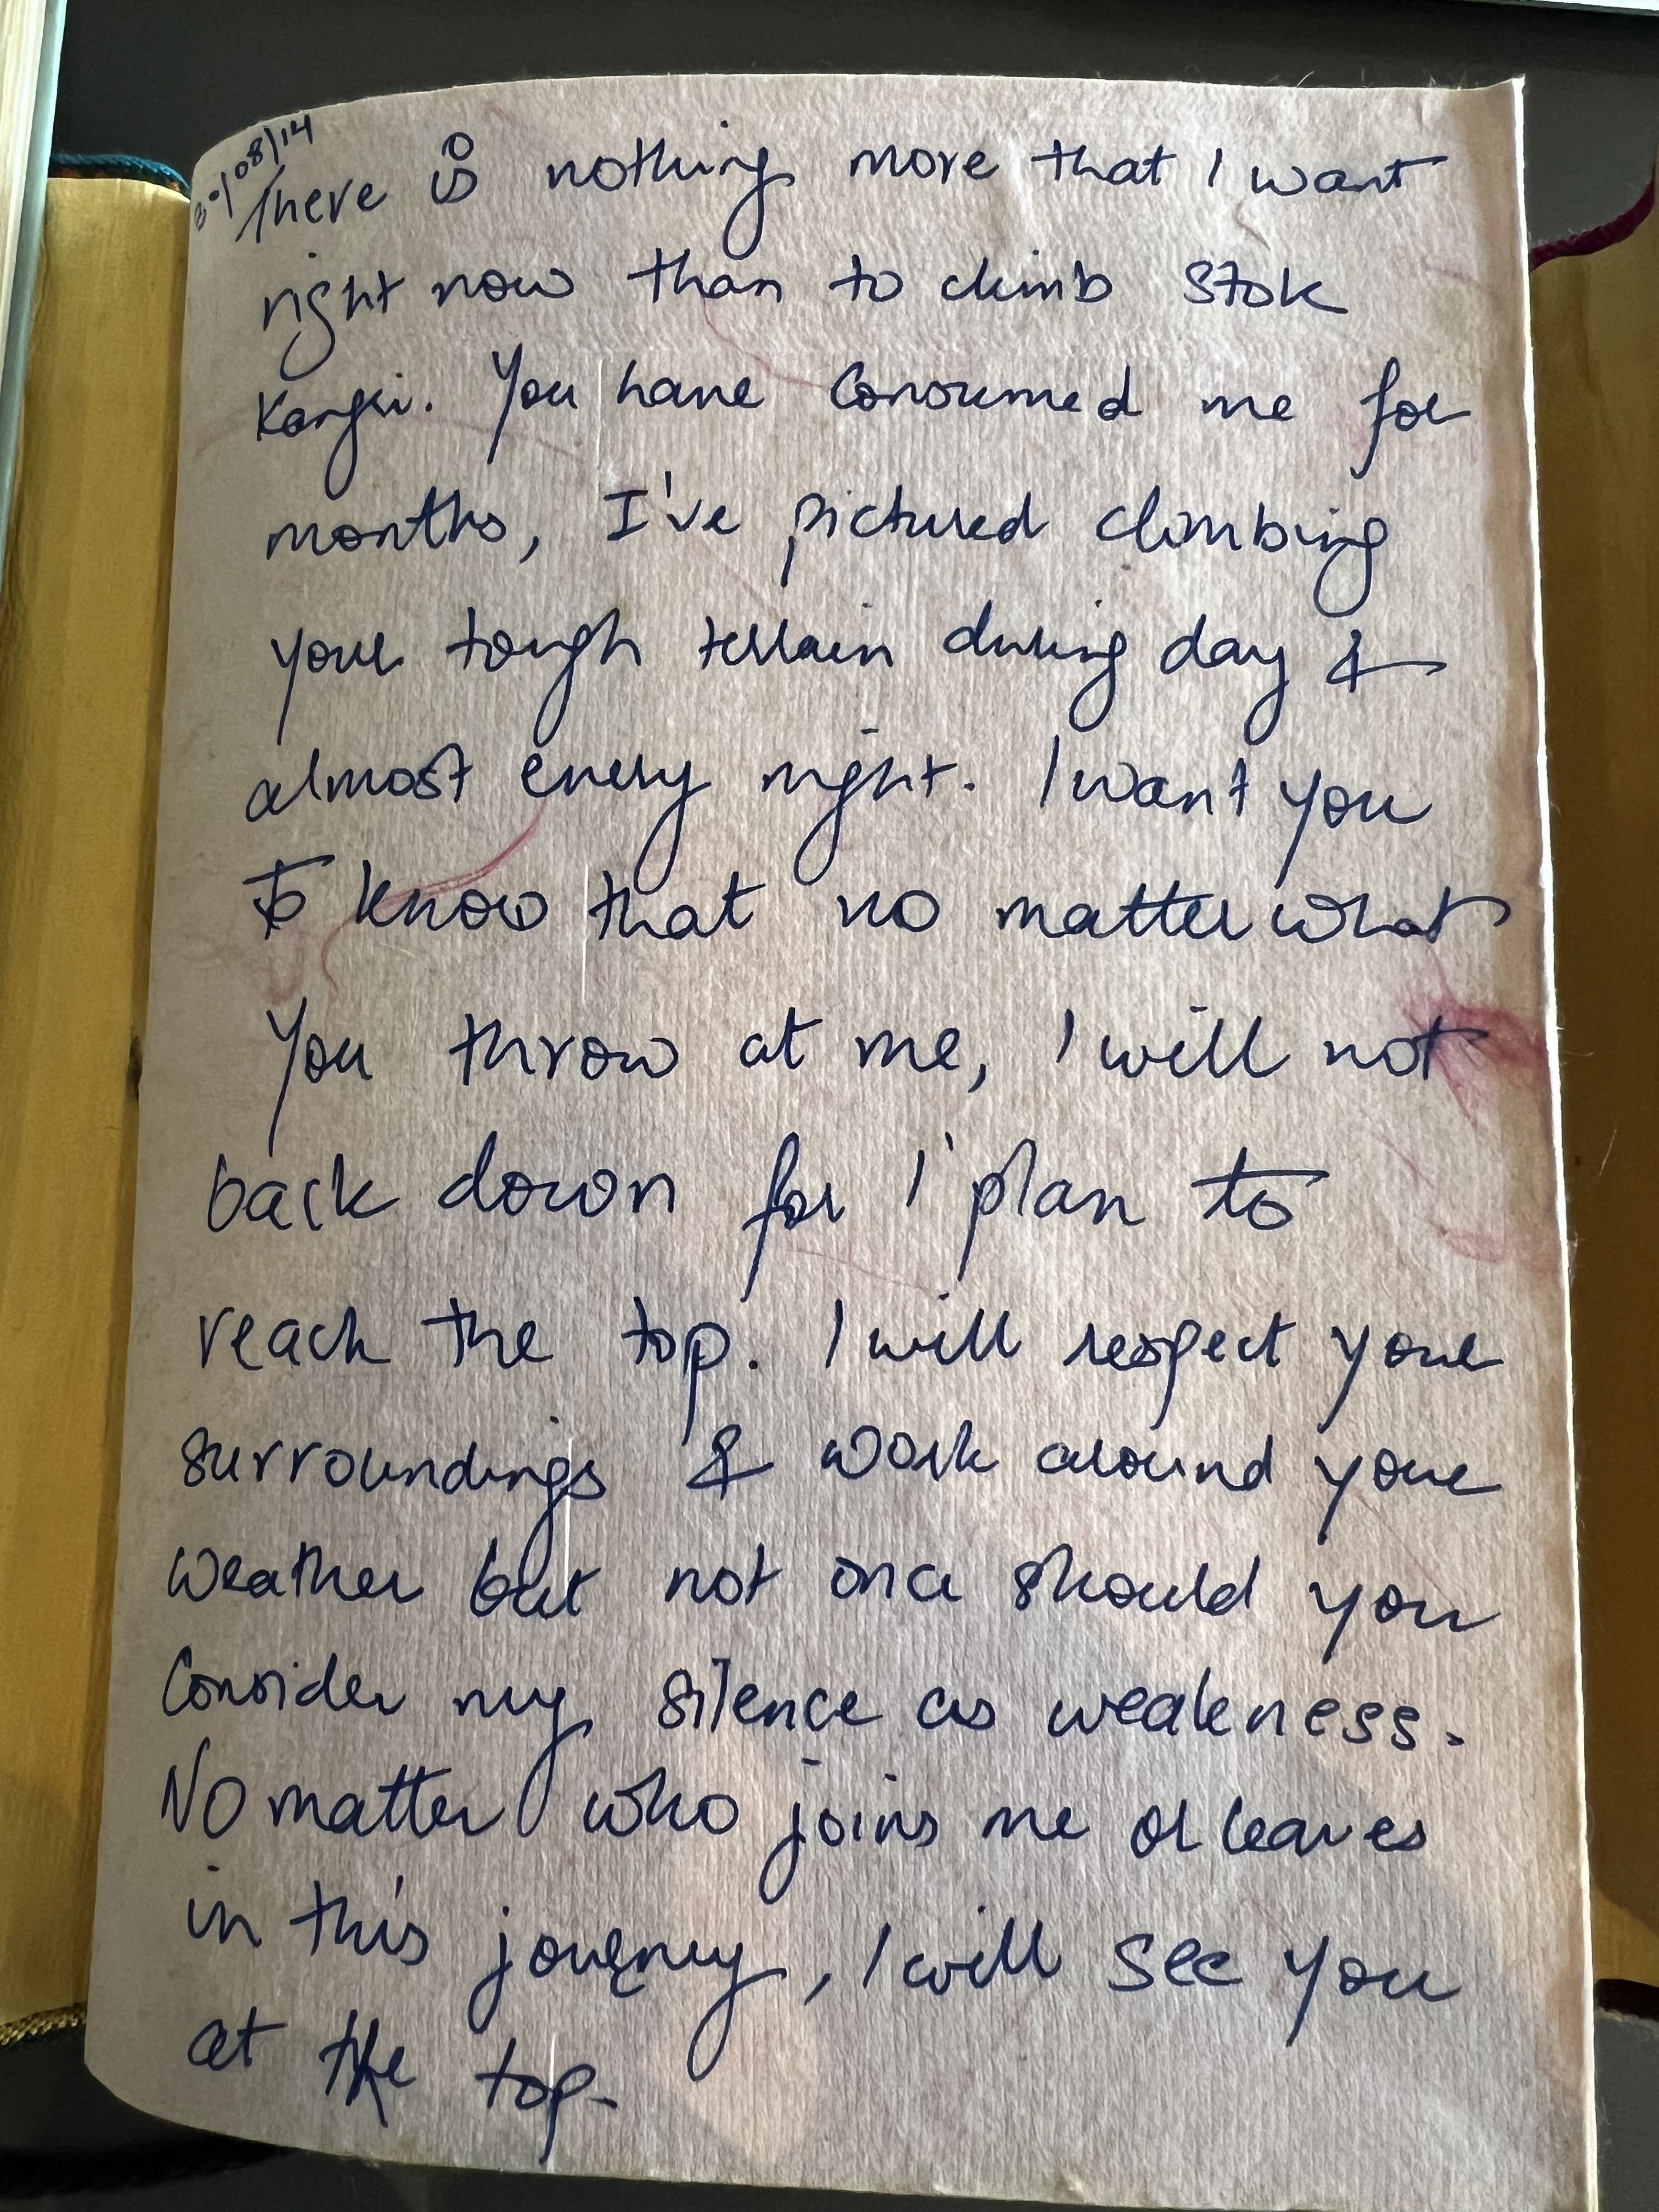 30/08/14
There is nothing more that I want
right now than to climb Stok
Kangri. You have consumed me for
months, I've pictured climbing
your tough terrain during day &
almost every night. I want you
to know that no matter what
you throw at me, I will not
back down for I plan to
reach the top. I will respect your
surroundings & work around your
weather but not once should you
consider my silence as weakness.
No matter who joins me or leaves
in this journey, I will see you
at the top.